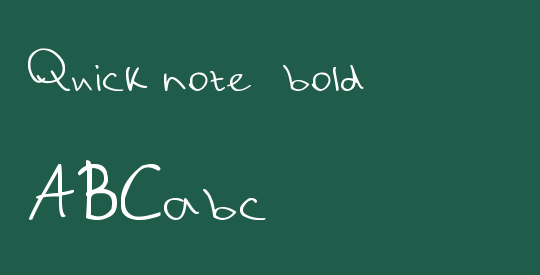 Quick note bold
ABCabc